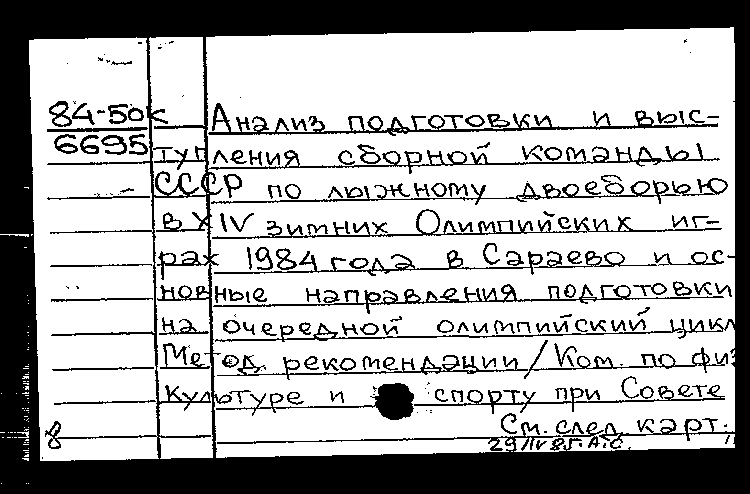 84-50к
6695
Анализ подготовки и выс-
тупления сборной команды
СССР по лыжному двоеборью
в XIV зимних Олимпийских иг-
рах 1984 года в Сараево и ос-
новные направления подготовки
на очередной олимпийский цикл
Метод. рекомендации/Ком. по физ
культуре и спорту при Совете
См. след. карт.
8
29/IV 85. А.С.